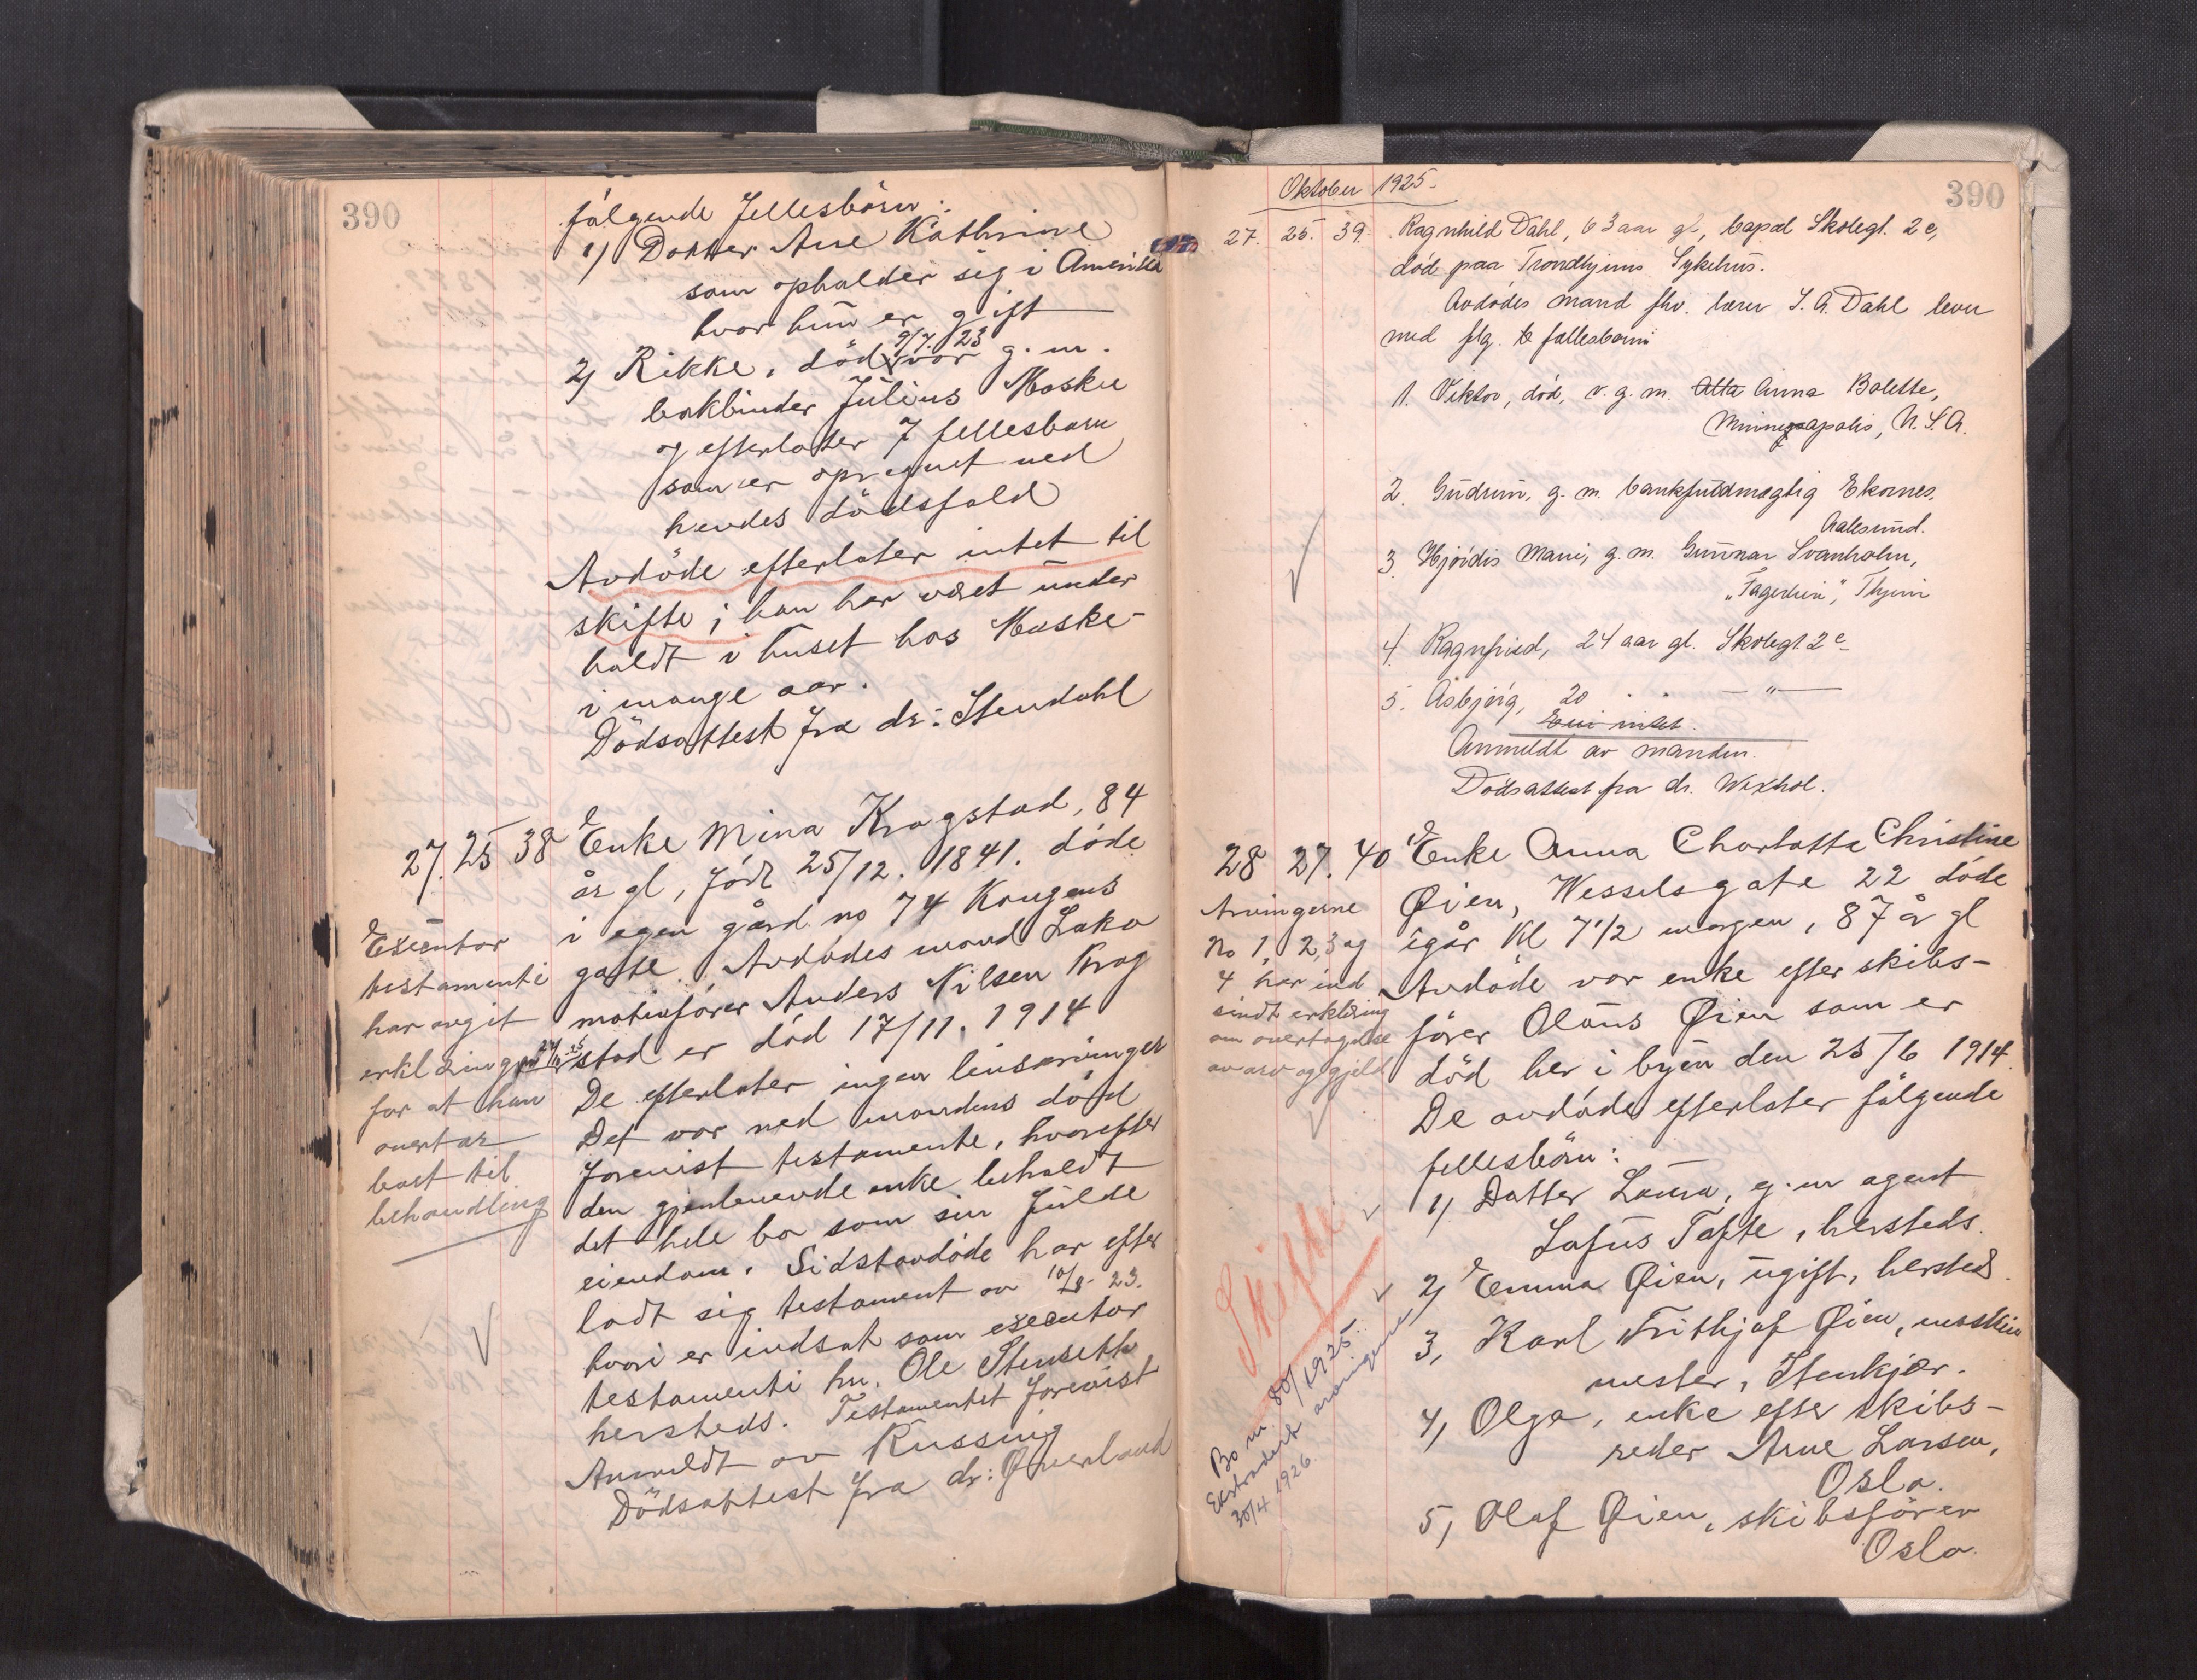 390
følgende fellesbörn:
1) Datter Ane Kathrine
som opholder sig i Amerika
hvor hun er gift
9/7. 23
2) Rikke, död, var g. m.
bokbinder Julius Moske
og efterlater 7 fellesbarn
som er opregnet ved
hendes dödsfald
Avdöde efterlater intet til
skifte; han har været under
holdt i huset hos Moske-
i mange aar.
Dödsattest fra dr: Stendahl
27. 25 38 Enke Mina Kragstad, 84
år gl, född 25/12. 1841. döde
i egen gård no 74 Kongens
gate. Avdödes mand Loko
motivförer Anders Nilsen Krog
stad er död 17/11. 1914
De efterlater ingen livsarvinger
Det var ved mandens död
forevist testamente, hvorefter
den gjenlevende enke beholdt
det hele bo som sin fulde
eiendom. Sidstavdöde har efter
ladt sig testament av 10/8- 23.
hvori er indsat som executor
testamenti hr. Ole Stenseth
hersteds. Testamentet forevist
Anmeldt av Russing
Dödsattest fra dr: Øverland
Executor
testamenti
har avgit
erklæring
for at han
overtar
boet til
behandling
Oktober 1925.
390
27. 25. 39. Ragnhild Dahl, 63 aar gl, bopæl Skolegt. 2c,
död paa Trondhjems Sykehus.
Avdödes mand fhv. lærer S. A. Dahl lever
med flg. fellesbarn
1. Viktor, död, v. g. m. Anna Bolette,
Minneapolis, U. S. A.
2. Gudrun, g. m. bankfuldmægtig Ekornes,
Aalesund.
3. Hjördis Marie, g. m. Gunnar Svanholm,
"Fagerlien", Thjem
4. Ragnfrid, 24 aar gl. Skolegt. 2c
5. Asbjörg, 20 " "
Eier intet.
Anmeldt av manden.
Dödsattest fra dr. Waxhol.
28 27. 40 Enke Anna Charlotte Christine
Øien, Wesselsgate 22 döde
igår Kl 7 1/2 morgen, 87 år gl
Avdöde var enke efter skibs-
förer Olaus Øien som er
död her i byen den 25/6 1914.
De avdöde efterlater fölgende
fellesbörn:
1) Datter Laura, g. m agent
Lafus Tapte, hersteds.
2) Emma Øien, ugift, hersteds.
3, Karl Frithjof Øien, maskin
mester, Stenkjær.
4, Olga, enke efter skibs-
reder Arne Larsen,
Oslo.
5, Olaf Øien, skibsförer
Oslo.
Arvingerne
No 1, 2, 3 og
4 har ind
sendt erklæring
om overtagelse
av arv og gjeld
Skifte
Bo nr. 80/1925.
Ekstradert arvingene
30/4 1926.